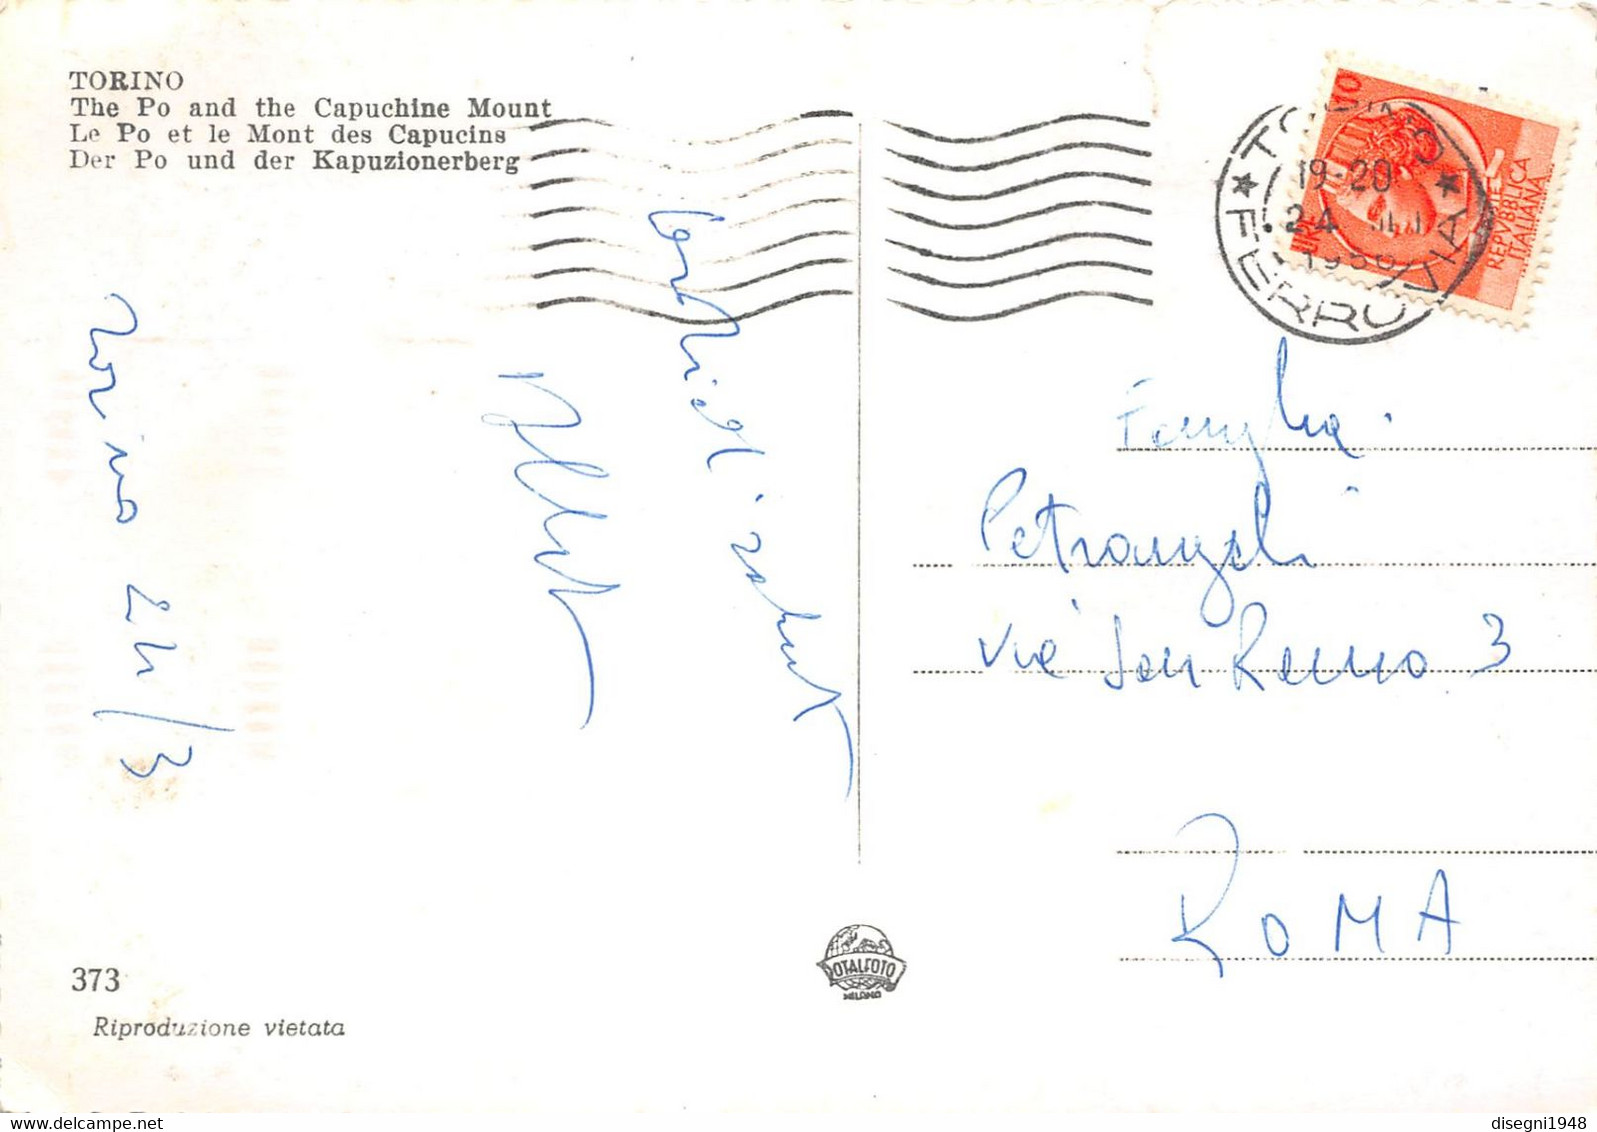 TORINO
The Po and the Capuchine Mount
Le Po et le Mont des Capucins
Der Po und der Kapuzionerberg
TORINO
FERROVIA
19-20
24 III
REPVBBLICA
ITALIANA
Torino 24/3
Cordiali saluti
Famiglia
Petrangeli
Via San Remo 3
ROMA
ROTALFOTO
MILANO
373
Riproduzione vietata
disegni1948